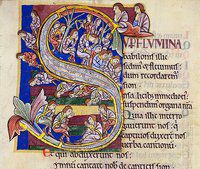 SUP FLUMINA
babilonis illic
sedim & fleuimus
dum recordarem
hcib; in medio
suspendim organa nra
Quia illic interro
gauerunt nos qui
tiuos duxerunt nos
uerba cantionu
Et qui abduxerunt nos:
ymnu cantate nob de canticis sion